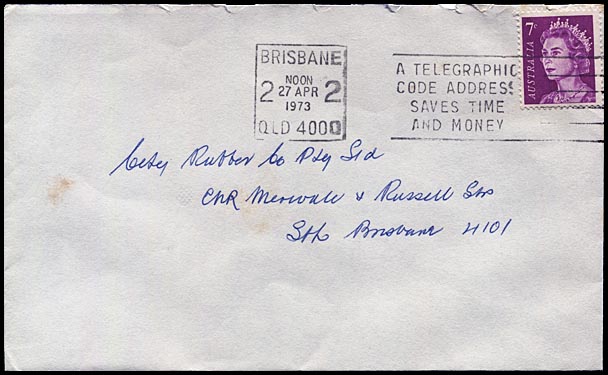 BRISBANE
NOON
2 27 APR 2
1973
QLD 4000
A TELEGRAPHIC
CODE ADDRESS
SAVES TIME
AND MONEY
7c
AUSTRALIA
City Rubber Co Pty Ltd
CNR Merivale & Russell Sts
Sth Brisbane 4101